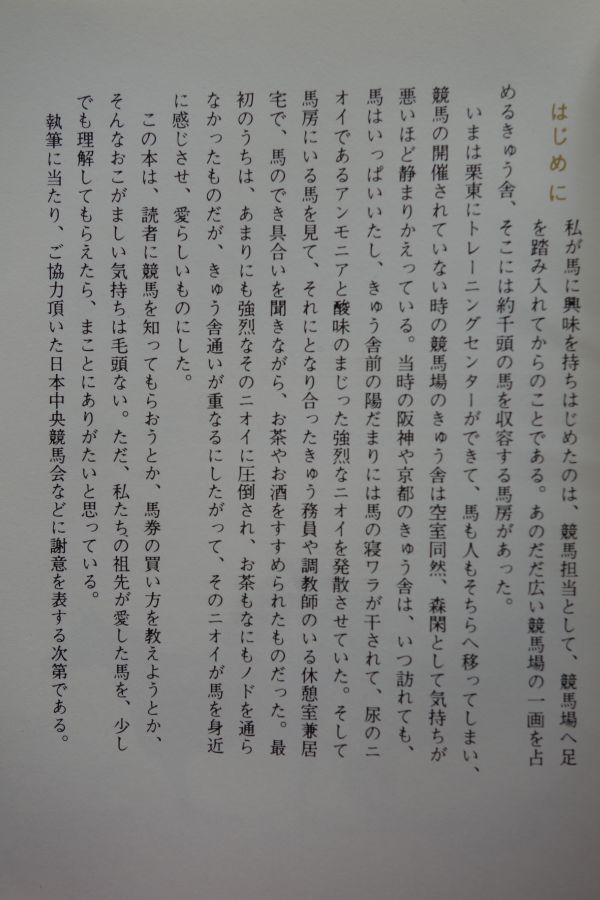 はじめに
私が馬に興味を持ちはじめたのは、競馬担当として、競馬場へ足
を踏み入れてからのことである。あのだだ広い競馬場の一画を占
めるきゅう舎、そこには約千頭の馬を収容する馬房があった。
いまは栗東にトレーニングセンターができて、馬も人もそちらへ移ってしまい、
競馬の開催されていない時の競馬場のきゅう舎は空室同然、森閑として気持ちが
悪いほど静まりかえっている。当時の阪神や京都のきゅう舎は、いつ訪れても、
馬はいっぱいいたし、きゅう舎前の陽だまりには馬の寝ワラが干されて、尿のニ
オイであるアンモニアと酸味のまじった強烈なニオイを発散させていた。そして
馬房にいる馬を見て、それにとなり合ったきゅう務員や調教師のいる休憩室兼居
宅で、馬のでき具合いを聞きながら、お茶やお酒をすすめられたものだった。最
初のうちは、あまりにも強烈なそのニオイに圧倒され、お茶もなにもノドを通ら
なかったものだが、きゅう舎通いが重なるにしたがって、そのニオイが馬を身近
に感じさせ、愛らしいものにした。
この本は、読者に競馬を知ってもらおうとか、馬券の買い方を教えようとか、
そんなおこがましい気持ちは毛頭ない。ただ、私たちの祖先が愛した馬を、少し
でも理解してもらえたら、まことにありがたいと思っている。
執筆に当たり、ご協力頂いた日本中央競馬会などに謝意を表する次第である。